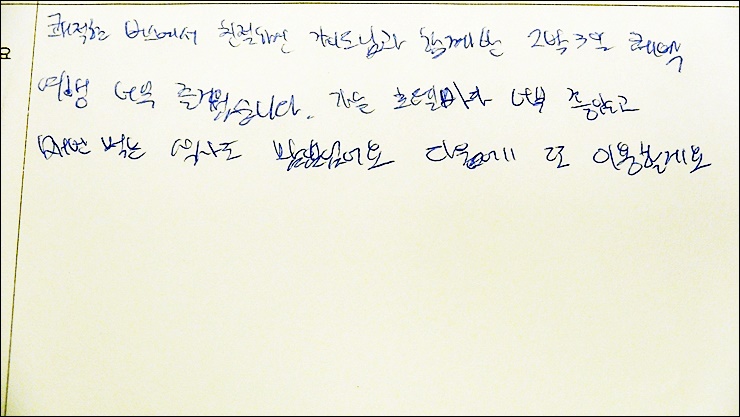 쾌적한 버스에서 친절하신 가이드님과 함께한 2박3일
여행 너무 즐거웠습니다. 가는 호텔마다 너무 좋았고
매번 먹는 식사도 맛있었어요 다음에 또 이용할게요